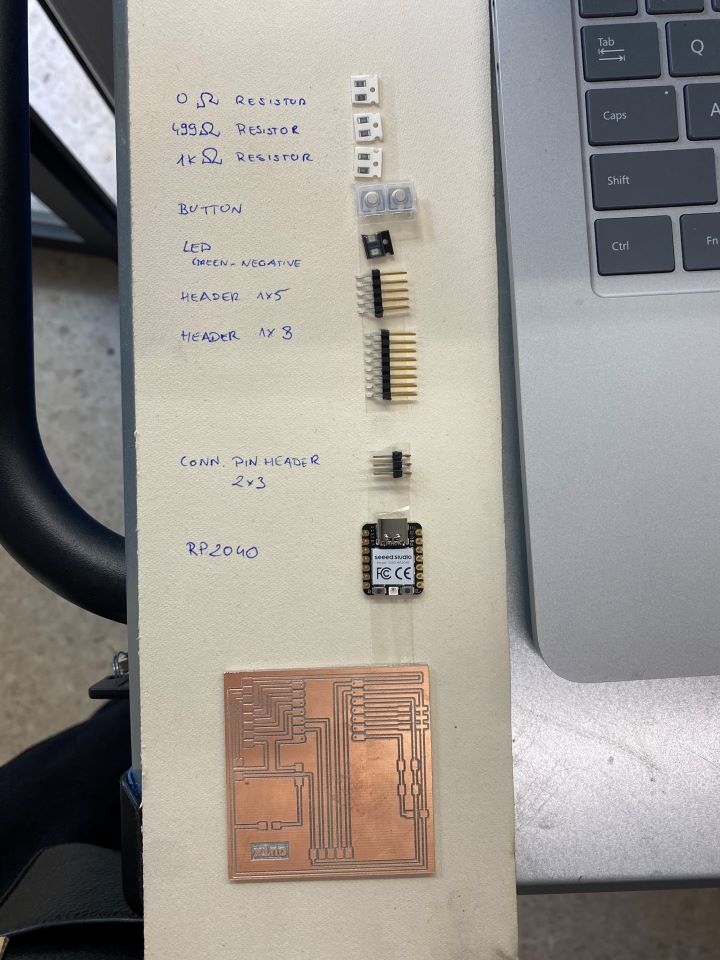 0 Ω RESISTOR
499Ω RESISTOR
1K Ω RESISTOR
BUTTON
LED
GREEN-NEGATIVE
HEADER 1x5
HEADER 1x8
CONN. PIN HEADER
2x3
RP2040
seeed studio
FC CE
Tab
Q
Caps
A
Shift
Ctrl
Fn